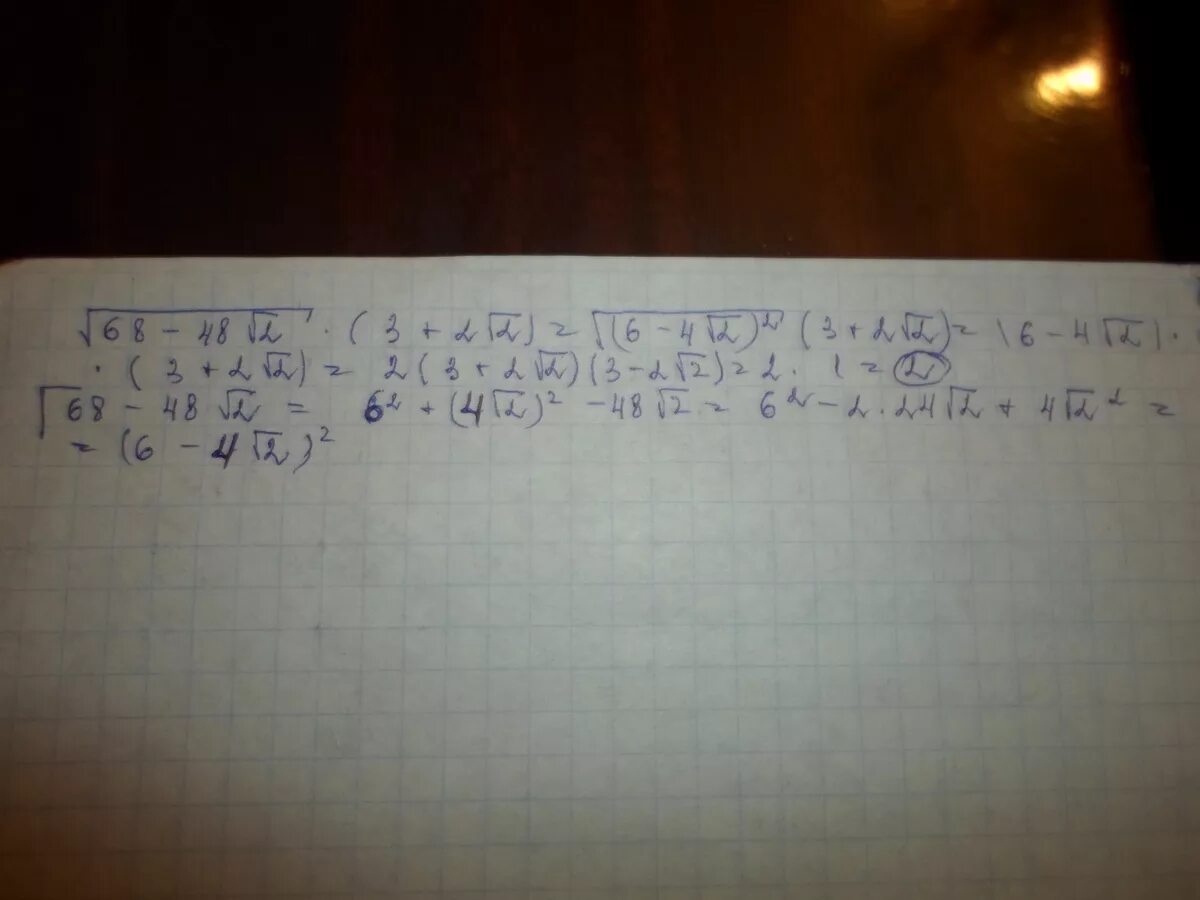 √(68 - 48√2) · (3 + 2√2) = √((6 - 4√2)²) (3 + 2√2) = |6 - 4√2| ·
· (3 + 2√2) = 2(3 + 2√2)(3 - 2√2) = 2 · 1 = 2
√68 - 48√2 = 6² + (4√2)² - 48√2 = 6² - 2·24√2 + 4√2² =
= (6 - 4√2)²